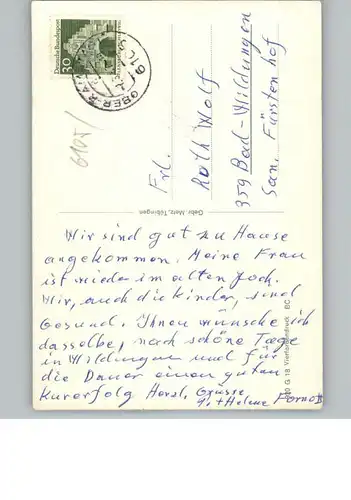 Wir sind gut zu Hause
angekommen. Meine Frau
ist wieder im alten Joch.
Wir, auch die Kinder, sind
Gesund. Ihnen wünsche ich
dasselbe, noch schöne Tage
in Wildungen und für
die Dauer einen guten
Kurerfolg Herzl. Grüsse
+ Helene
Frl.
Ruth Wolf
359 Bad-Wildungen
San. Fürstenhof
Deutsche Bundespost
30
6105/
Gebr. Metz, Tübingen
G 18 Vierfarbendruck BC